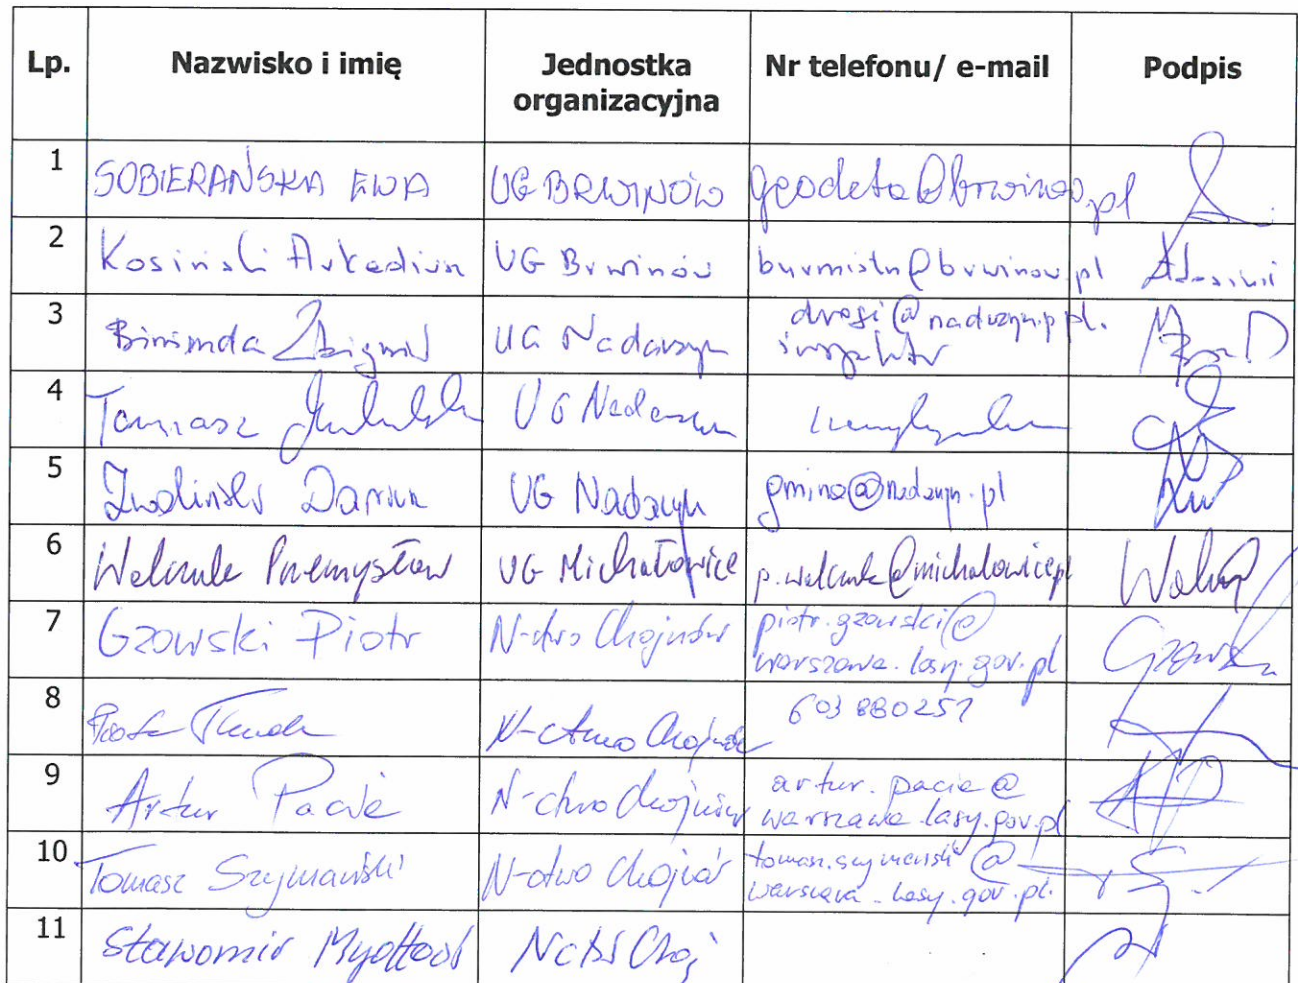 Lp. Nazwisko i imię Jednostka organizacyjna Nr telefonu/ e-mail Podpis
1 SOBIERAŃSKA EWA UG BRWINÓW geodeta@brwinow.pl
2 Kosiński Arkadiusz UG Brwinów burmistrz@brwinow.pl
3 Binienda Zbigniew UG Nadarzyn drogi@nadarzyn.pl
inspektor
4 Tomasz UG Nadarzyn
5 Zwoliński Dariusz UG Nadarzyn gmina@nadarzyn.pl
6 Walczuk Przemysław UG Michałowice p.walczuk@michalowice.pl
7 Gzowski Piotr N-ctwo Chojnów piotr.gzowski@
warszawa.lasy.gov.pl Gzowski
8 N-ctwo Chojnów 603 880251
9 Artur Pacie N-ctwo Chojnów artur.pacie@
warszawa.lasy.gov.pl
10 Tomasz Szymański N-ctwo Chojnów tomasz.szymanski@
warszawa.lasy.gov.pl.
11 Sławomir